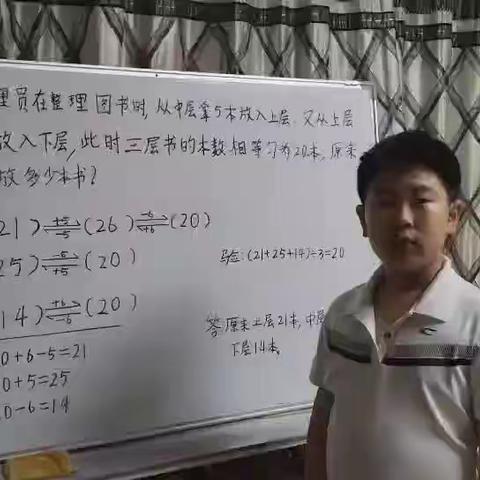 理员在整理图书时,从中层拿5本放入上层,又从上层
放入下层,此时三层书的本数相等匀为20本,原来
放多少本书?
21)⇌+5 -5(26)⇌-6 +6(20)
25)⇌-5 +5(20)
14)⇌+6 -6(20)
验:(21+25+14)÷3=20
0+6-5=21
0+5=25
0-6=14
答:原来上层21本,中层
下层14本。